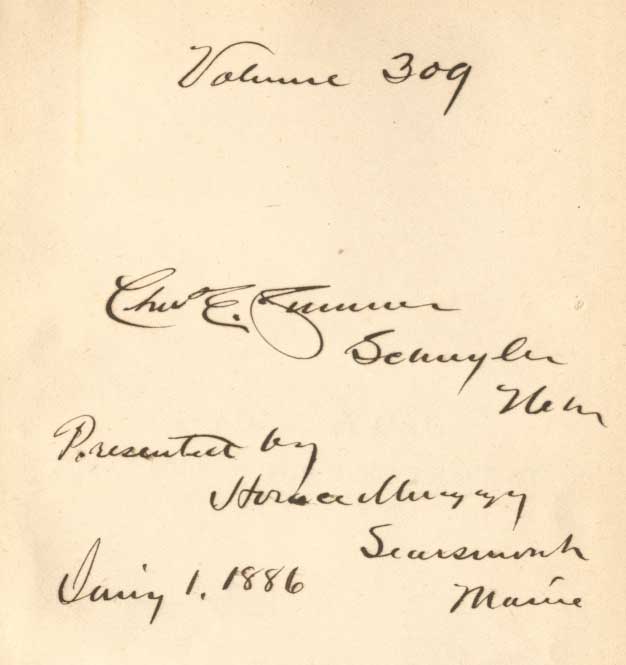 Volume 309
Chas E. Sumner
Schuyler
Nebr
Presented by
Horace Muzzy
Searsmont
Maine
Jany 1, 1886